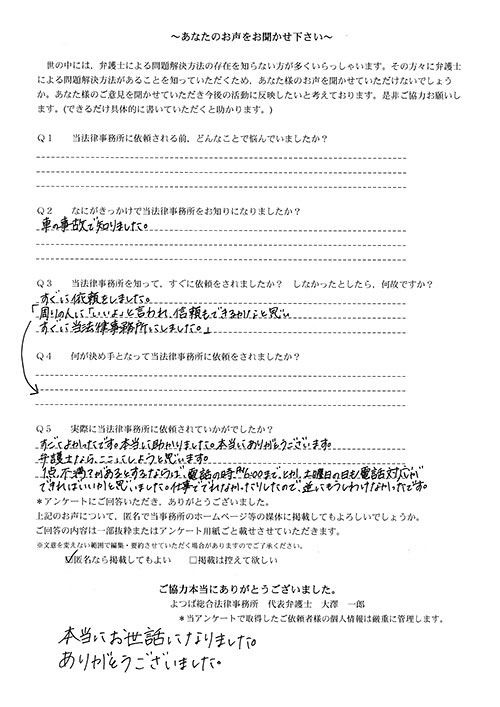 ～あなたのお声をお聞かせ下さい～
世の中には、弁護士による問題解決方法の存在を知らない方が多くいらっしゃいます。その方々に弁護士
による問題解決方法があることを知っていただくため、あなた様のお声を聞かせていただけないでしょう
か。あなた様のご意見を聞かせていただき今後の活動に反映したいと考えております。是非ご協力お願いし
ます。(できるだけ具体的に書いていただくと助かります。)
Q１　当法律事務所に依頼される前、どんなことで悩んでいましたか？
Q２　なにがきっかけで当法律事務所をお知りになりましたか？
車の事故で知りました。
Q３　当法律事務所を知って、すぐに依頼をされましたか？　しなかったとしたら、何故ですか？
すぐに依頼をしました。
「周りの人に「いいよ」と言われ、信頼もできるかなと思い
すぐに当法律事務所にしました。」
Q４　何が決め手となって当法律事務所に依頼をされましたか？
Q５　実際に当法律事務所に依頼されていかがでしたか？
すごくよかったです。本当に助かりました。本当にありがとうございます。
弁護士なら、ここにしようと思います。
1点、不満てがあるとするならば、電話の時間が とか、土曜日の日も電話対応が
できればいいかと思いました。仕事ででれなかったりしたので、逆にもうしわけなかったです。
＊アンケートにご回答いただき、ありがとうございました。
上記のお声について、匿名で当事務所のホームページ等の媒体に掲載してもよろしいでしょうか。
ご回答の内容は一部抜粋またはアンケート用紙ごと載せさせていただきます。
※文意を変えない範囲で編集・要約させていただく場合がありますのでご了承ください。
☑匿名なら掲載してもよい　□掲載は控えて欲しい
ご協力本当にありがとうございました。
よつば総合法律事務所　代表弁護士　大澤　一郎
＊当アンケートで取得したご依頼者様の個人情報は厳重に管理します。
本当にお世話になりました。
ありがとうございました。